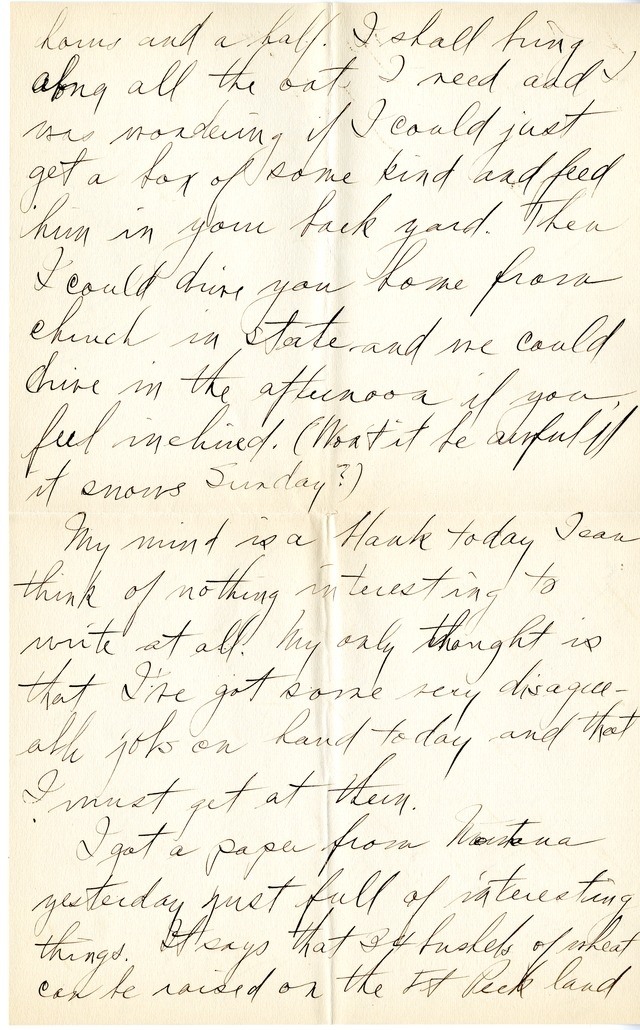 hours and a half. I shall bring
along all the oats I need and I
was wondering if I could just
get a box of some kind and feed
him in your back yard. Then
I could drive you home from
church in state and we could
drive in the afternoon if you
feel inclined. (Won't it be awful if
it snows Sunday?)
My mind is a blank today I can
think of nothing interesting to
write at all. My only thought is
that I've got some very disagree-
able jobs on hand today and that
I must get at them.
I got a paper from Montana
yesterday just full of interesting
things. It says that 34 bushels of wheat
can be raised on the Ft Peck land